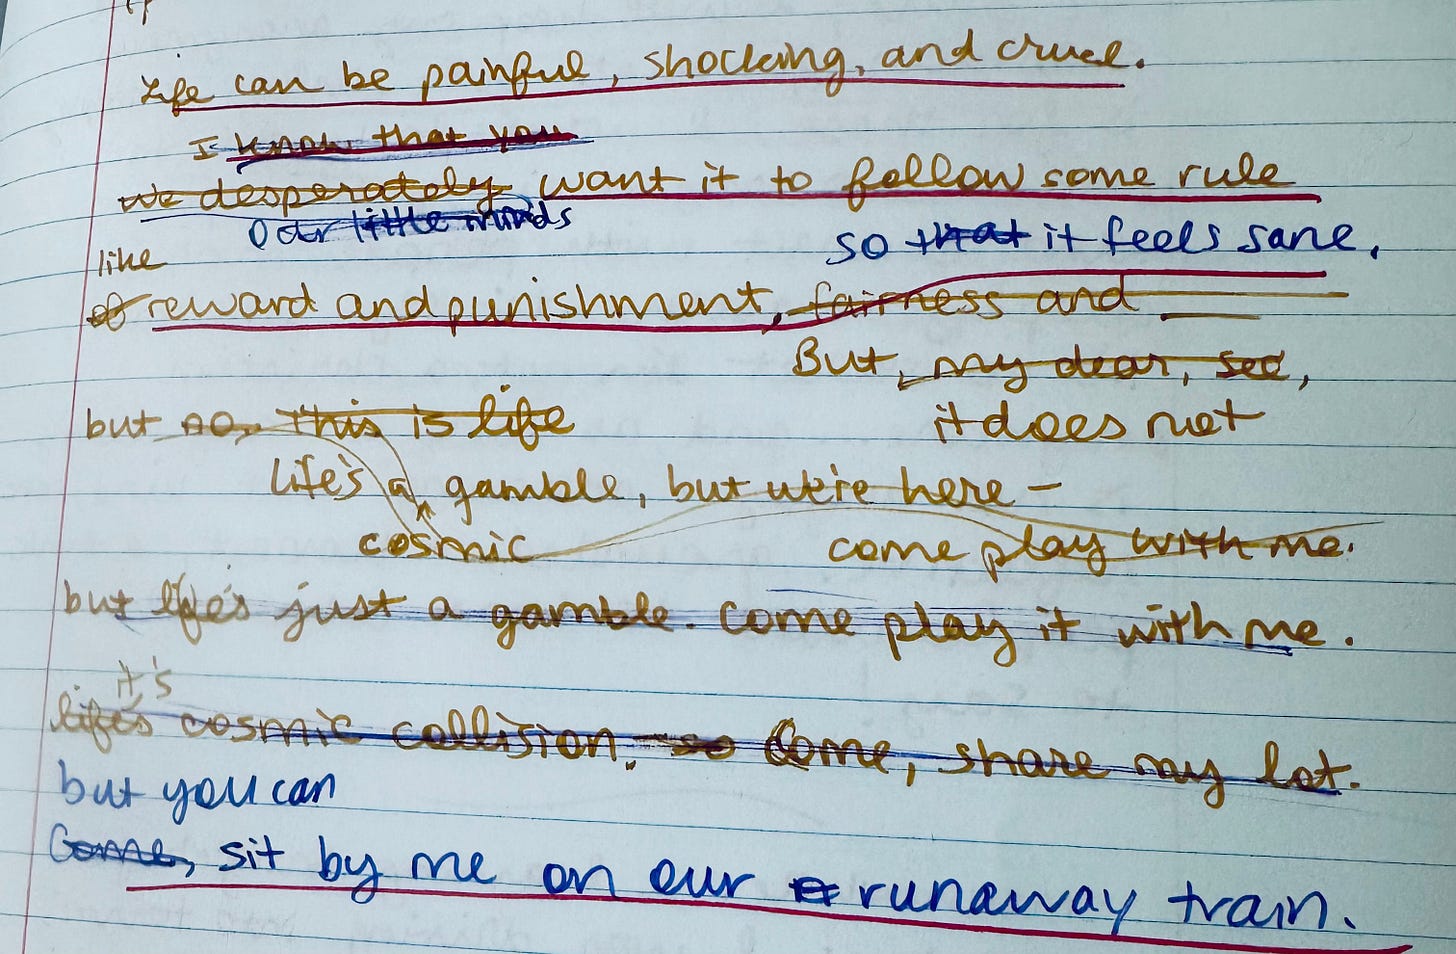 Life can be painful, shocking, and cruel.
I know that you
we desperately want it to follow some rule
Our little minds
so that it feels sane,
like
of reward and punishment, fairness and ___
But, my dear, see,
but no, this is life
it does not
life's a gamble, but we're here -
cosmic
come play with me.
but life's just a gamble. Come play it with me.
it's
life's cosmic collision. so Come, share my lot.
but you can
Come, sit by me on our runaway train.